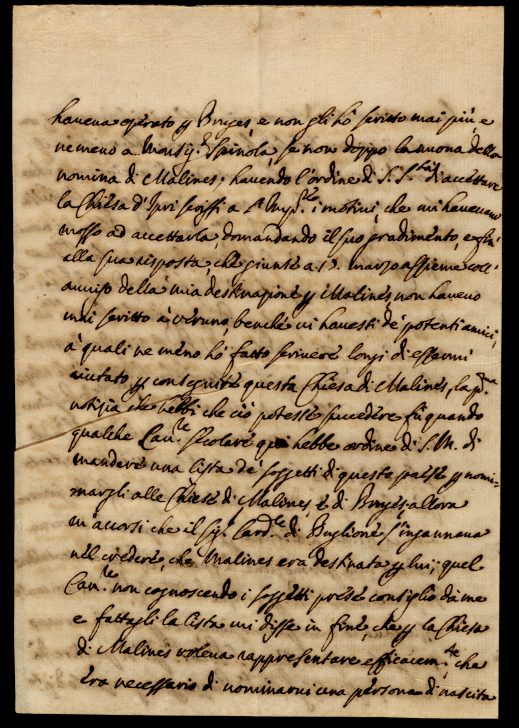 haveva operato p Bruges, e non gli hò scritto mai più, e
ne meno a Monsig.r Spinola, se non doppo la nuova della
nomina di Malines; havendo l'ordine di S. S.tà di accettare
la Chiesa d'Ipri scrissi a S. i motivi, che mi havevano
mosso ad accettarla, domandando il suo gradimento, e sin'
alla sua risposta, che giunse a 19. marzo assieme coll'
avviso della mia destinazione p Malines non havevo
mai scritto à veruno, benche vi havessi de potenti amici,
à quali ne meno hò fatto scrivere longi di essermi
aiutato p conseguire questa Chiesa di Malines, la p.ma
notizia che hebbi che ciò potesse succedere fù quando
qualche Cav.re secolare qui hebbe ordine di S. M. di
mandare una lista de soggetti di questo paese p nomi-
nargli alle Chiese di Malines, e di Bruges, allora
m'accorsi che il sig.r Card.le di Buglione s'ingannava
nel credere, che Malines era destinata p lui; quel
Cav.re non cognoscendo i soggetti prese consiglio da me
e fattagli la lista mi disse in fine, che p la Chiesa
di Malines voleva rappresentare efficacem.te, che
era necessario di nominarvi una persona di nascita